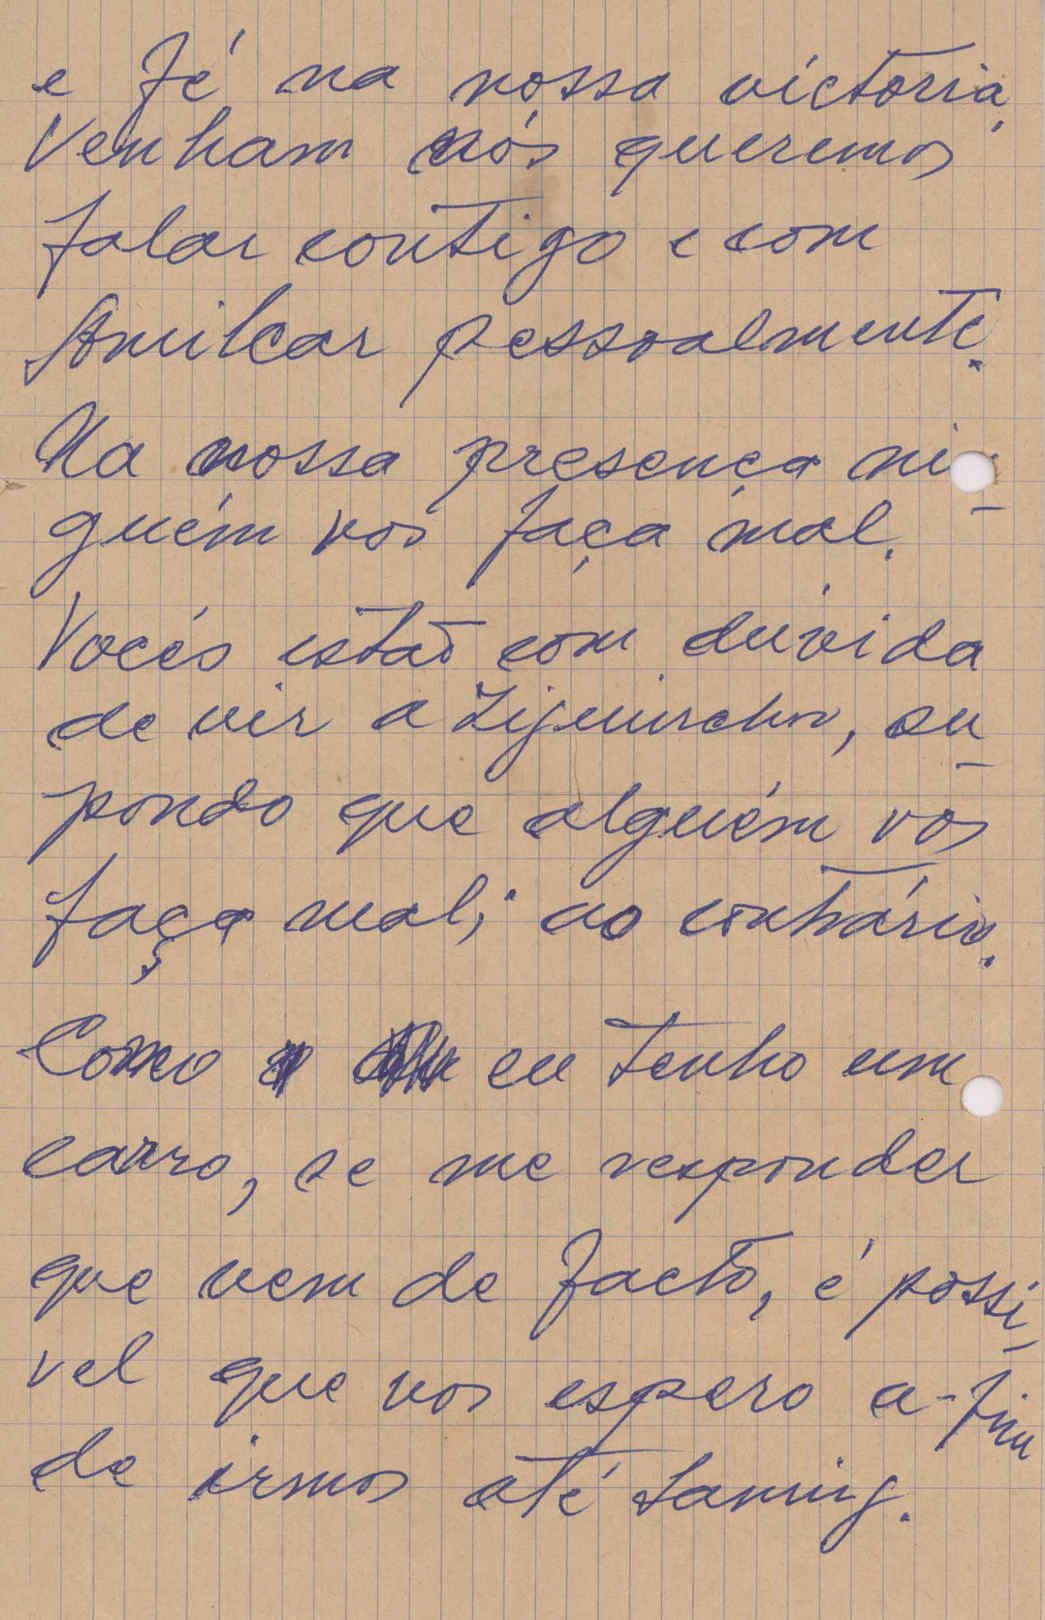 e fé na nossa victoria.
Venham nós queremos
falar contigo e com
Amilcar pessoalmente.
Na nossa presença ni-
guém vos faça mal.
Vocês estaõ com dúvida
de vir a Zijuinchor, su-
pondo que alguém vos
faça mal; ao contrário.
Como eu tenho um
carro, se me responder
que vem de facto, é possi-
vel que vos espero a-fim
de irmos até Saming.